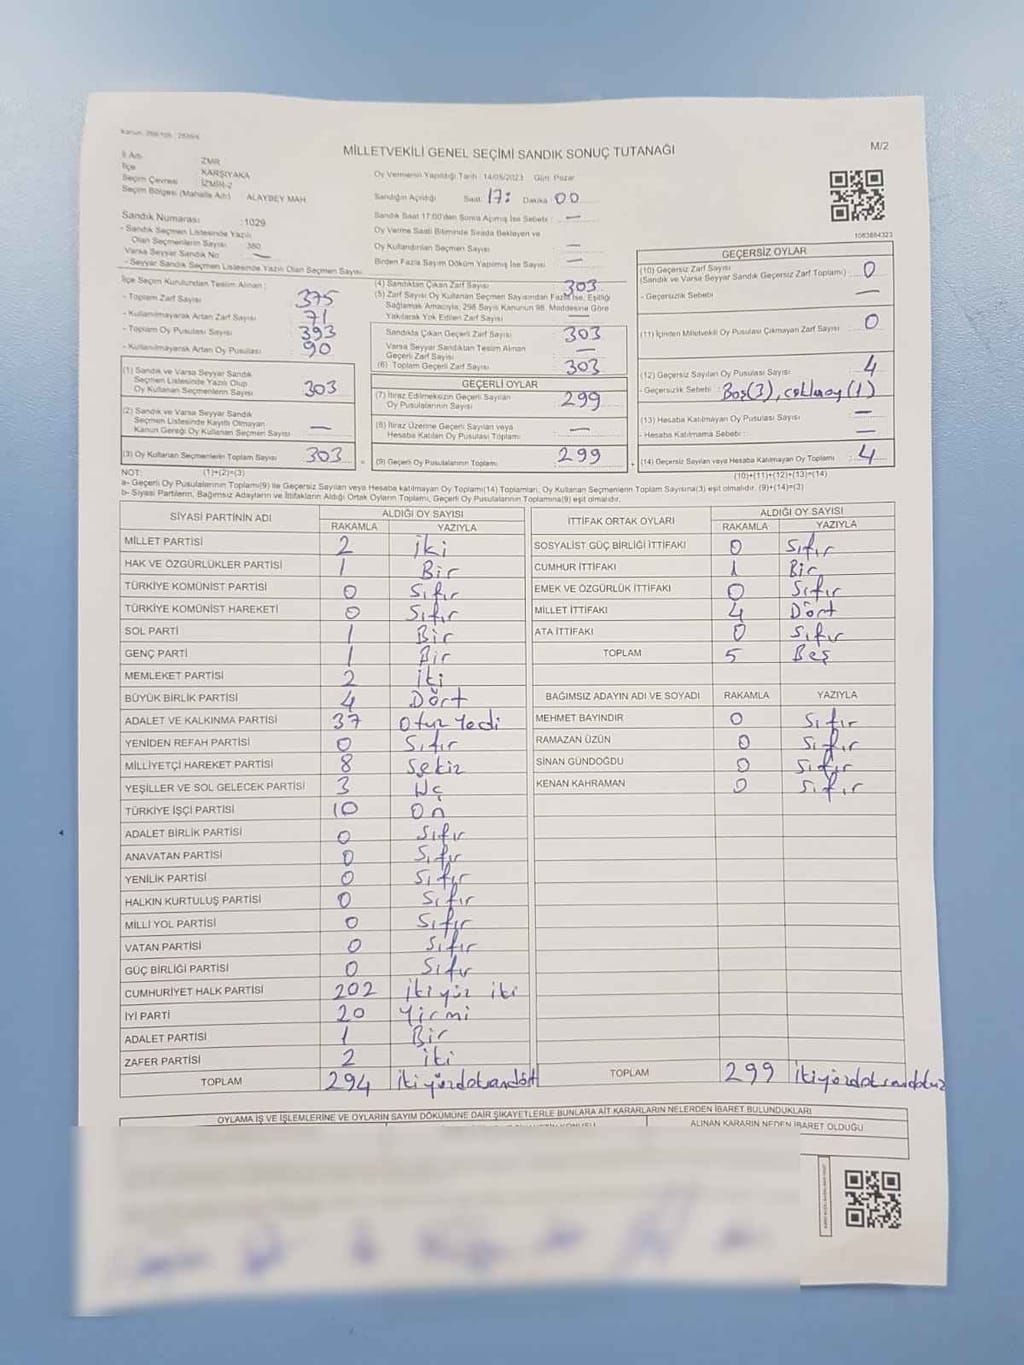 M/2
MİLLETVEKİLİ GENEL SEÇİMİ SANDIK SONUÇ TUTANAĞI
İl Adı: ZMİR
İlçe KARŞIYAKA
Seçim Çevresi İZMİR-2
Seçim Bölgesi (Mahalle Adı) ALAYBEY MAH
Oy Vermenin Yapıldığı Tarih : 14/05/2023 Gün: Pazar
Sandığın Açıldığı Saat: 17: Dakika: 00
Sandık Saat 17:00'den Sonra Açılmış İse Sebebi : —
Oy Verme Saati Bitiminde Sırada Bekleyen ve
Oy Kullandırılan Seçmen Sayısı —
Birden Fazla Sayım Döküm Yapılmış İse Sayısı —
Sandık Numarası : 1029
- Sandık Seçmen Listesinde Yazılı
Olan Seçmenlerin Sayısı 380
Varsa Seyyar Sandık No —
- Seyyar Sandık Seçmen Listesinde Yazılı Olan Seçmen Sayısı
1083884323
İlçe Seçim Kurulundan Teslim Alınan :
- Toplam Zarf Sayısı 375
- Kullanılmayarak Artan Zarf Sayısı 71
- Toplam Oy Pusulası Sayısı 393
- Kullanılmayarak Artan Oy Pusulası 90
(1) Sandık ve Varsa Seyyar Sandık
Seçmen Listesinde Yazılı Olup
Oy Kullanan Seçmenlerin Sayısı 303
(2) Sandık ve Varsa Seyyar Sandık
Seçmen Listesinde Kayıtlı Olmayan
Kanun Gereği Oy Kullanan Seçmen Sayısı —
(3) Oy Kullanan Seçmenlerin Toplam Sayısı 303
(4) Sandıktan Çıkan Zarf Sayısı 303
(5) Zarf Sayısı Oy Kullanan Seçmen Sayısından Fazla İse, Eşitliği
Sağlamak Amacıyla, 298 Sayılı Kanunun 98. Maddesine Göre
Yakılarak Yok Edilen Zarf Sayısı —
Sandıkta Çıkan Geçerli Zarf Sayısı 303
Varsa Seyyar Sandıktan Teslim Alınan
Geçerli Zarf Sayısı —
(6) Toplam Geçerli Zarf Sayısı 303
GEÇERLİ OYLAR
(7) İtiraz Edilmeksizin Geçerli Sayılan
Oy Pusulalarının Sayısı 299
(8) İtiraz Üzerine Geçerli Sayılan veya
Hesaba Katılan Oy Pusulası Toplamı —
(9) Geçerli Oy Pusulalarının Toplamı 299
GEÇERSİZ OYLAR
(10) Geçersiz Zarf Sayısı
(Sandık ve Varsa Seyyar Sandık Geçersiz Zarf Toplamı) : 0
- Geçersizlik Sebebi : —
(11) İçinden Milletvekili Oy Pusulası Çıkmayan Zarf Sayısı : 0
(12) Geçersiz Sayılan Oy Pusulası Sayısı : 4
- Geçersizlik Sebebi : Boş(3), (1)
(13) Hesaba Katılmayan Oy Pusulası Sayısı —
- Hesaba Katılmama Sebebi : —
(14) Geçersiz Sayılan veya Hesaba Katılmayan Oy Toplamı : 4
NOT: (1)+(2)=(3) (10)+(11)+(12)+(13)=(14)
a- Geçerli Oy Pusulalarının Toplamı(9) ile Geçersiz Sayılan veya Hesaba katılmayan Oy Toplamı(14) Toplamları, Oy Kullanan Seçmenlerin Toplam Sayısına(3) eşit olmalıdır. (9)+(14)=(3)
b- Siyasi Partilerin, Bağımsız Adayların ve İttifakların Aldığı Ortak Oyların Toplamı, Geçerli Oy Pusulalarının Toplamına(9) eşit olmalıdır.
SİYASİ PARTİNİN ADI ALDIĞI OY SAYISI
RAKAMLA YAZIYLA
MİLLET PARTİSİ 2 iki
HAK VE ÖZGÜRLÜKLER PARTİSİ 1 Bir
TÜRKİYE KOMÜNİST PARTİSİ 0 Sıfır
TÜRKİYE KOMÜNİST HAREKETİ 0 Sıfır
SOL PARTİ 1 Bir
GENÇ PARTİ 1 Bir
MEMLEKET PARTİSİ 2 iki
BÜYÜK BİRLİK PARTİSİ 4 Dört
ADALET VE KALKINMA PARTİSİ 37 Otuz Yedi
YENİDEN REFAH PARTİSİ 0 Sıfır
MİLLİYETÇİ HAREKET PARTİSİ 8 Sekiz
YEŞİLLER VE SOL GELECEK PARTİSİ 3 Üç
TÜRKİYE İŞÇİ PARTİSİ 10 On
ADALET BİRLİK PARTİSİ 0 Sıfır
ANAVATAN PARTİSİ 0 Sıfır
YENİLİK PARTİSİ 0 Sıfır
HALKIN KURTULUŞ PARTİSİ 0 Sıfır
MİLLİ YOL PARTİSİ 0 Sıfır
VATAN PARTİSİ 0 Sıfır
GÜÇ BİRLİĞİ PARTİSİ 0 Sıfır
CUMHURİYET HALK PARTİSİ 202 ikiyüz iki
İYİ PARTİ 20 Yirmi
ADALET PARTİSİ 1 Bir
ZAFER PARTİSİ 2 iki
TOPLAM 294 ikiyüzdoksandört
İTTİFAK ORTAK OYLARI ALDIĞI OY SAYISI
RAKAMLA YAZIYLA
SOSYALİST GÜÇ BİRLİĞİ İTTİFAKI 0 Sıfır
CUMHUR İTTİFAKI 1 Bir
EMEK VE ÖZGÜRLÜK İTTİFAKI 0 Sıfır
MİLLET İTTİFAKI 4 Dört
ATA İTTİFAKI 0 Sıfır
TOPLAM 5 Beş
BAĞIMSIZ ADAYIN ADI VE SOYADI RAKAMLA YAZIYLA
MEHMET BAYINDIR 0 Sıfır
RAMAZAN ÜZÜN 0 Sıfır
SİNAN GÜNDOĞDU 0 Sıfır
KENAN KAHRAMAN 0 Sıfır
TOPLAM 299 ikiyüzdoksandokuz
OYLAMA İŞ VE İŞLEMLERİNE VE OYLARIN SAYIM DÖKÜMÜNE DAİR ŞİKAYETLERLE BUNLARA AİT KARARLARIN NELERDEN İBARET BULUNDUKLARI
ALINAN KARARIN NEDEN İBARET OLDUĞU